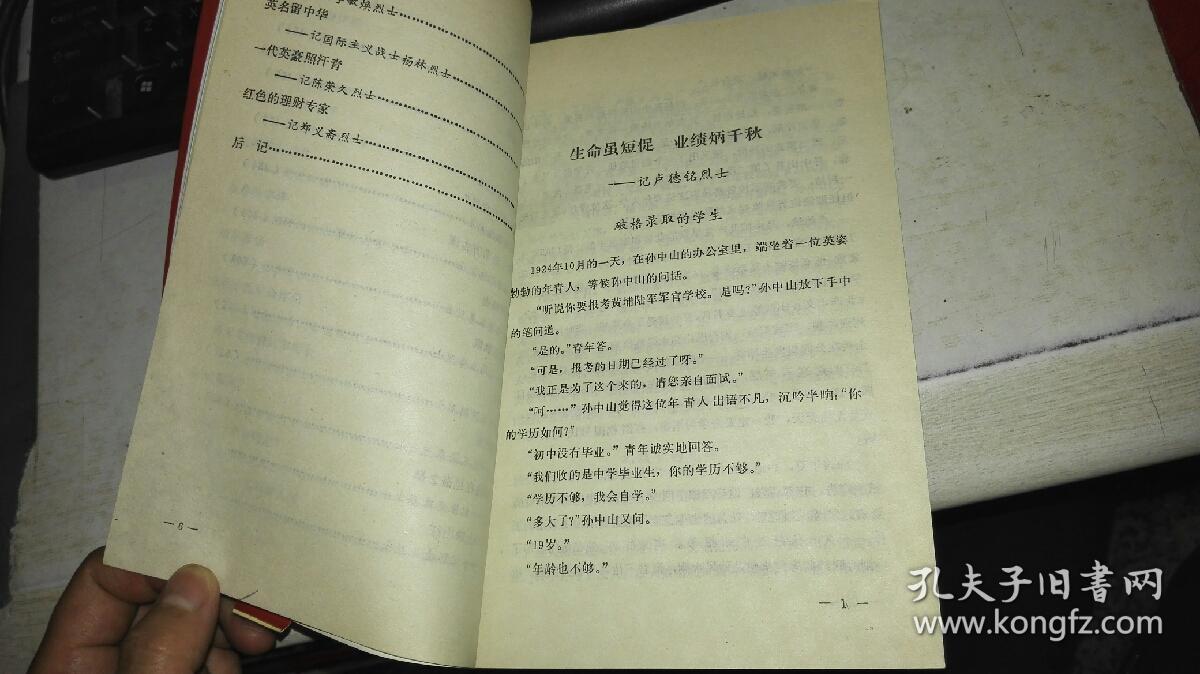 敏焕烈士
英名留中华
——记国际主义战士杨林烈士
一代英豪照汗青
——记陈荣久烈士
红色的理财专家
——记郑义斋烈士
后 记
—6—
生命虽短促 业绩炳千秋
——记卢德铭烈士
破格录取的学生
1924年10月的一天，在孙中山的办公室里，端坐着一位英姿
勃勃的年青人，等候孙中山的问话。
“听说你要报考黄埔陆军军官学校。是吗？”孙中山放下手中
的笔问道。
“是的。”青年答。
“可是，报考的日期已经过了呀。”
“我正是为了这个来的，请您亲自面试。”
“呵……”孙中山觉得这位年青人出语不凡，沉吟半晌：“你
的学历如何？”
“初中没有毕业。”青年诚实地回答。
“我们收的是中学毕业生，你的学历不够。”
“学历不够，我会自学。”
“多大了？”孙中山又问。
“19岁。”
“年龄也不够。”
— 1 —
孔夫子旧书网
www.kongfz.com